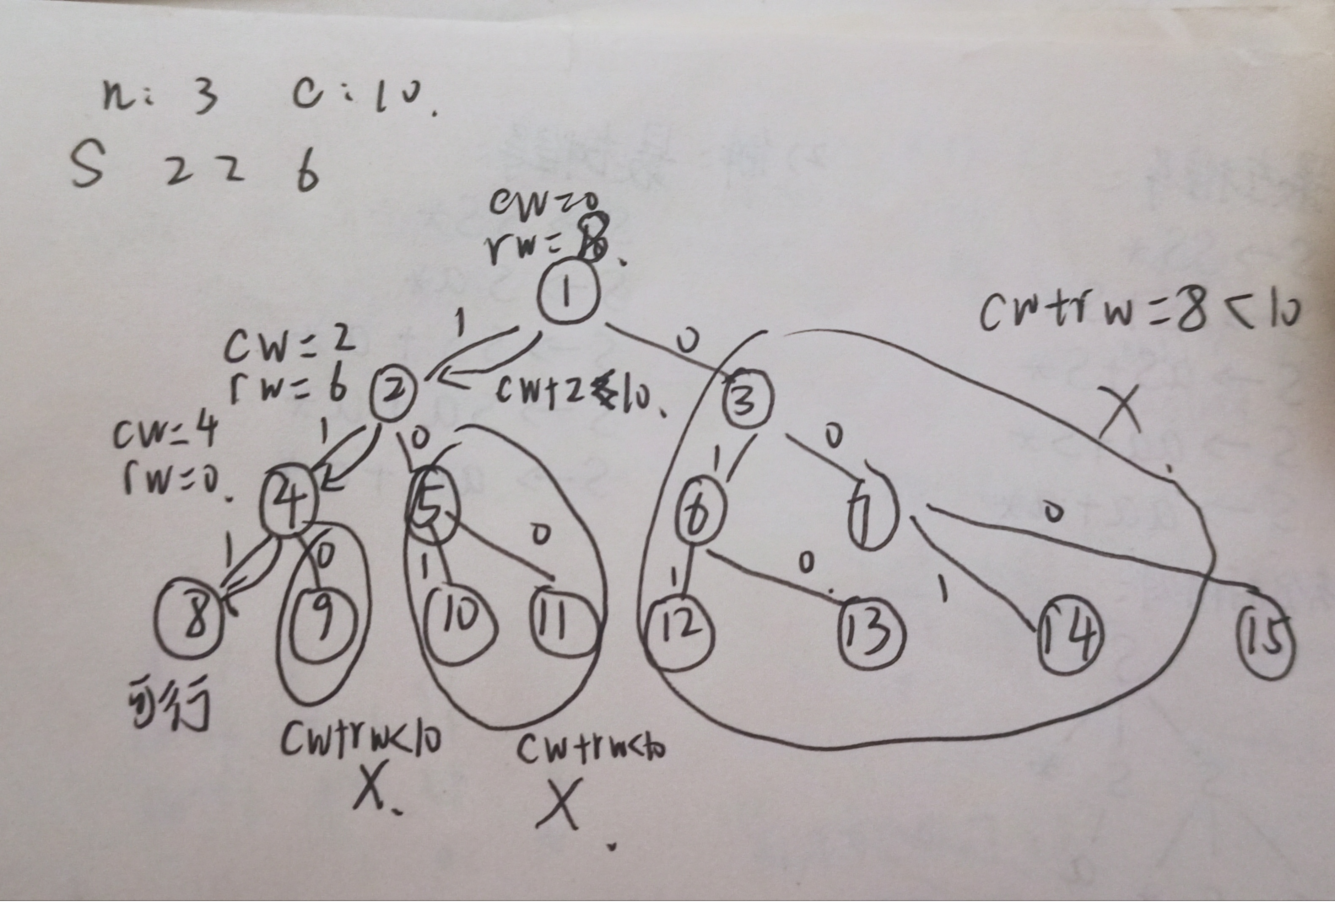 n: 3 C: 10.
S 2 2 6
cw=0
rw=8.
1
1
0
cw+rw=8<10
X
cw=2
rw=6
2
cw+2≤10.
3
cw=4
rw=0.
1
0
1
0
4
5
6
7
1
0
1
0
1
0
1
0
8
9
10
11
12
13
14
15
可行
cw+rw<10
X.
cw+rw<10
X.